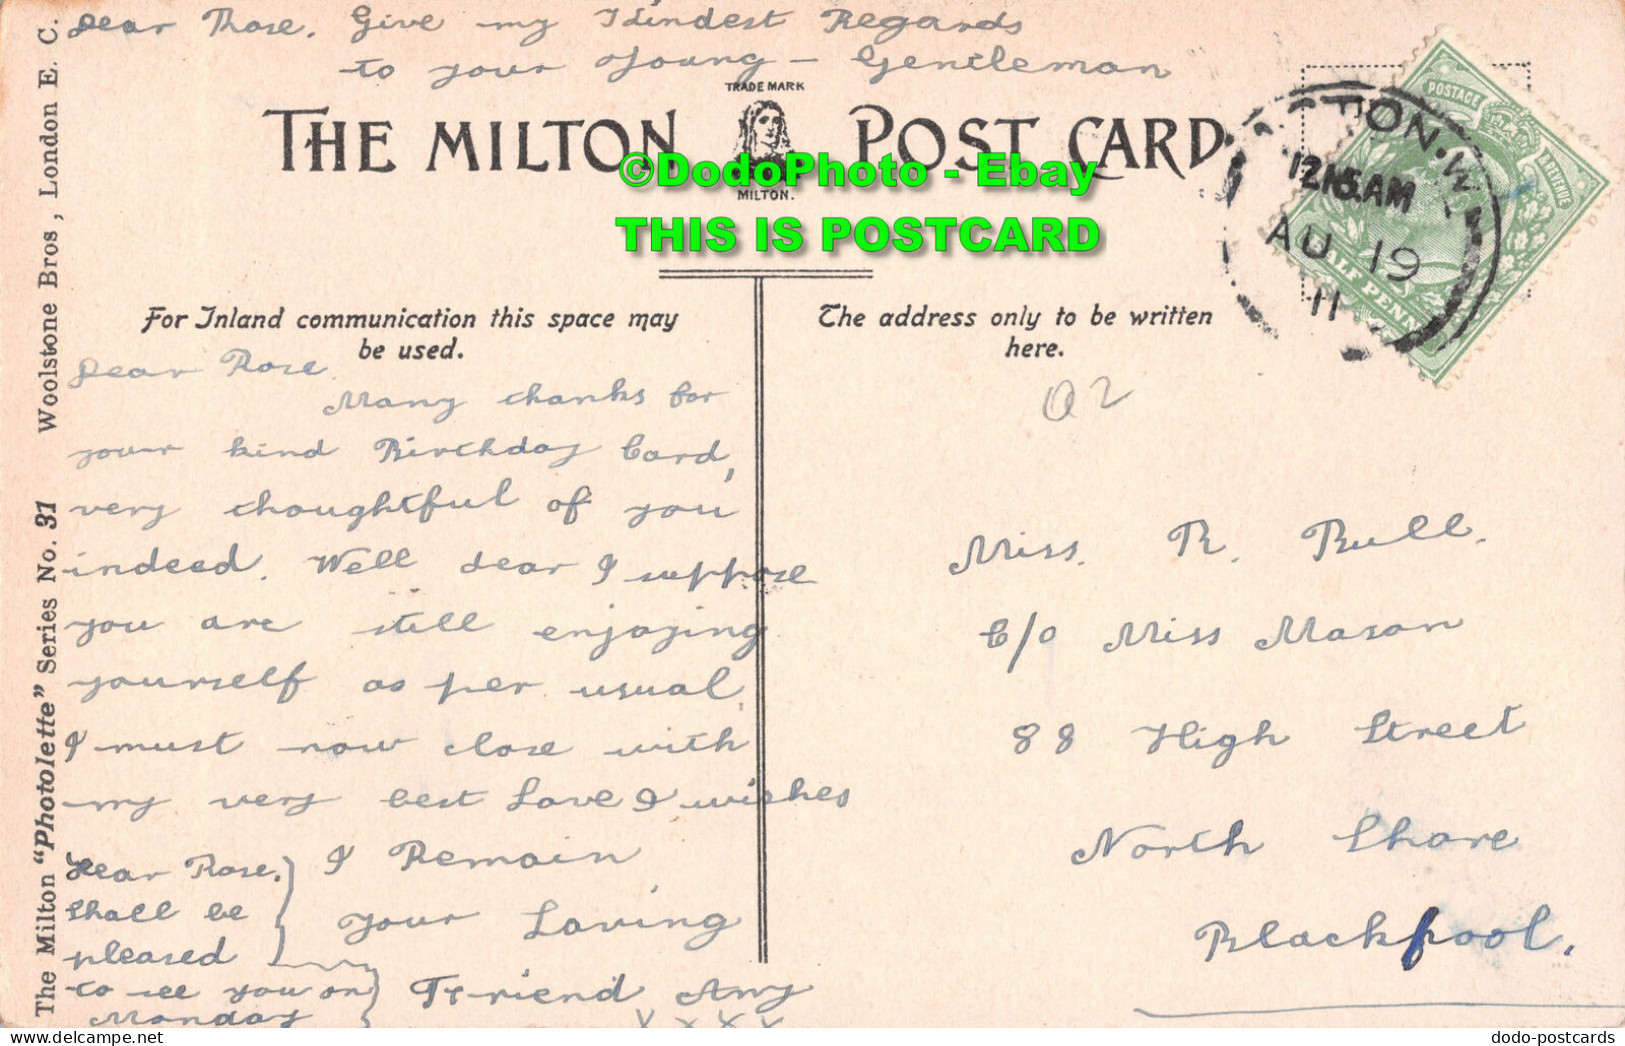 Dear Rose. Give my Kindest Regards
to your Young - Gentleman
TRADE MARK
THE MILTON POST CARD
MILTON.
©DodoPhoto - Ebay
THIS IS POSTCARD
TON.W
12.15AM
AU 19
11
POSTAGE
& REVENUE
HALF PENNY
For Inland communication this space may
be used.
The address only to be written
here.
Dear Rose
Many thanks for
your kind Birthday Card,
very thoughtful of you
indeed. Well dear I suppose
you are still enjoying
yourself as per usual
I must now close with
my very best Love & wishes
I Remain
Your Loving
Friend Amy
X X X X
Dear Rose.
Shall be
pleased
to see you on
Monday
a 2
Miss. R. Bull.
C/o Miss Mason
88 High Street
North Shore
Blackpool.
The Milton "Photolette" Series No. 31 Woolstone Bros, London E. C.
dodo-postcards